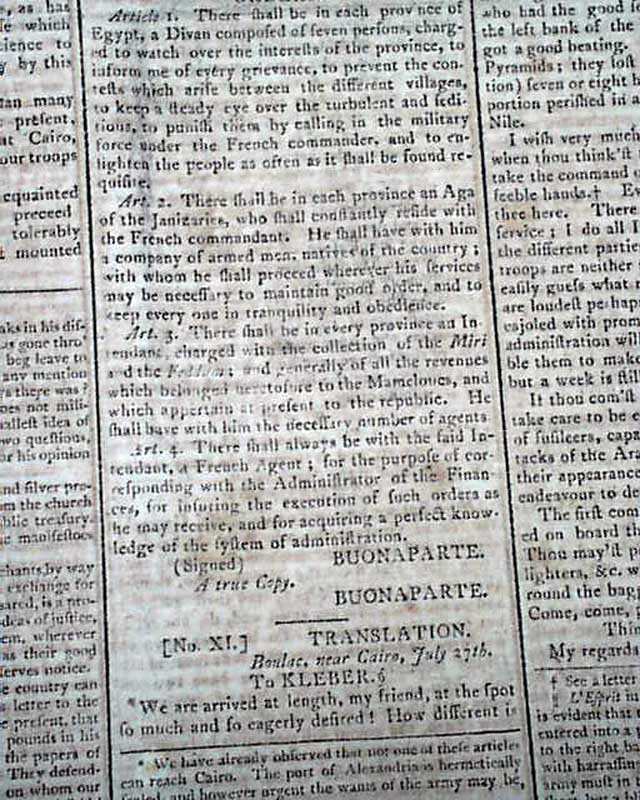 , as has
le which
cience to
y by this
man many
e present,
at Cairo,
our troops
cquainted
preceed
tolerably
t mounted
aks in his dif-
as gone thro'
beg leave to
any mention
ys there was?
oes not miss-
allest idea of
wo questions,
or his opinion
and silver pro-
om the church
blic treasury.
e manifestoes
chants by way
exchange for
sared, is a no-
ideas of justice,
em, wherever
as their good
serves notice.
e country can
a letter to the
e present, that
pounds in his
the papers of
They defend-
on whom our
Article 1. There shall be in each province of
Egypt, a Divan composed of seven persons, charg-
ed to watch over the interests of the province, to
inform me of every grievance, to prevent the con-
tests which arise between the different villages,
to keep a steady eye over the turbulent and sedi-
tious, to punish them by calling in the military
force under the French commander, and to en-
lighten the people as often as it shall be found re-
quisite.
Art. 2. There shall be in each province an Aga
of the Janizaries, who shall constantly reside with
the French commandant. He shall have with him
a company of armed men, natives of the country;
with whom he shall proceed wherever his services
may be necessary to maintain good order, and to
keep every one in tranquility and obedience.
Art. 3. There shall be in every province an In-
tendant, charged with the collection of the Miri
and the Feddam; and generally of all the revenues
which belonged heretofore to the Mameloucs, and
which appertain at present to the republic. He
shall have with him the necessary number of agents
Art. 4. There shall always be with the said In-
tendant, a French Agent; for the purpose of cor-
responding with the Administrator of the Finan-
ces, for insuring the execution of such orders as
he may receive, and for acquiring a perfect know-
ledge of the system of administration.
(Signed) BUONAPARTE.
A true Copy.
BUONAPARTE.
[No. XI.] TRANSLATION.
Boulac, near Cairo, July 27th.
To KLEBER.§
*We are arrived at length, my friend, at the spot
so much and so eagerly desired! How different is
* We have already observed that not one of these articles
can reach Cairo. The port of Alexandria is hermetically
sealed, and however urgent the wants of the army may be,
who had the good f
the left bank of the
got a good beating.
Pyramids; they lost
tion) seven or eight h
portion perished in
Nile.
I wish very much
when thou think'st
take the command o
feeble hands.† E
thee here. There
service; I do all I
the different partie
troops are neither
easily guess what
are loudest perhap
cajoled with prom
administration will
ble them to make
but a week is still
If thou com'st
take care to be e
of fusileers, capa
tacks of the Ara
their appearance
endeavour to de
The first com
ed on board th
Thou may'st p
lighters, &c. w
round the bagg
Come, come,
This
My regards
† See a letter
L'Esprit in
is evident that
entered into a
to the right ba
with harrassing
army must in